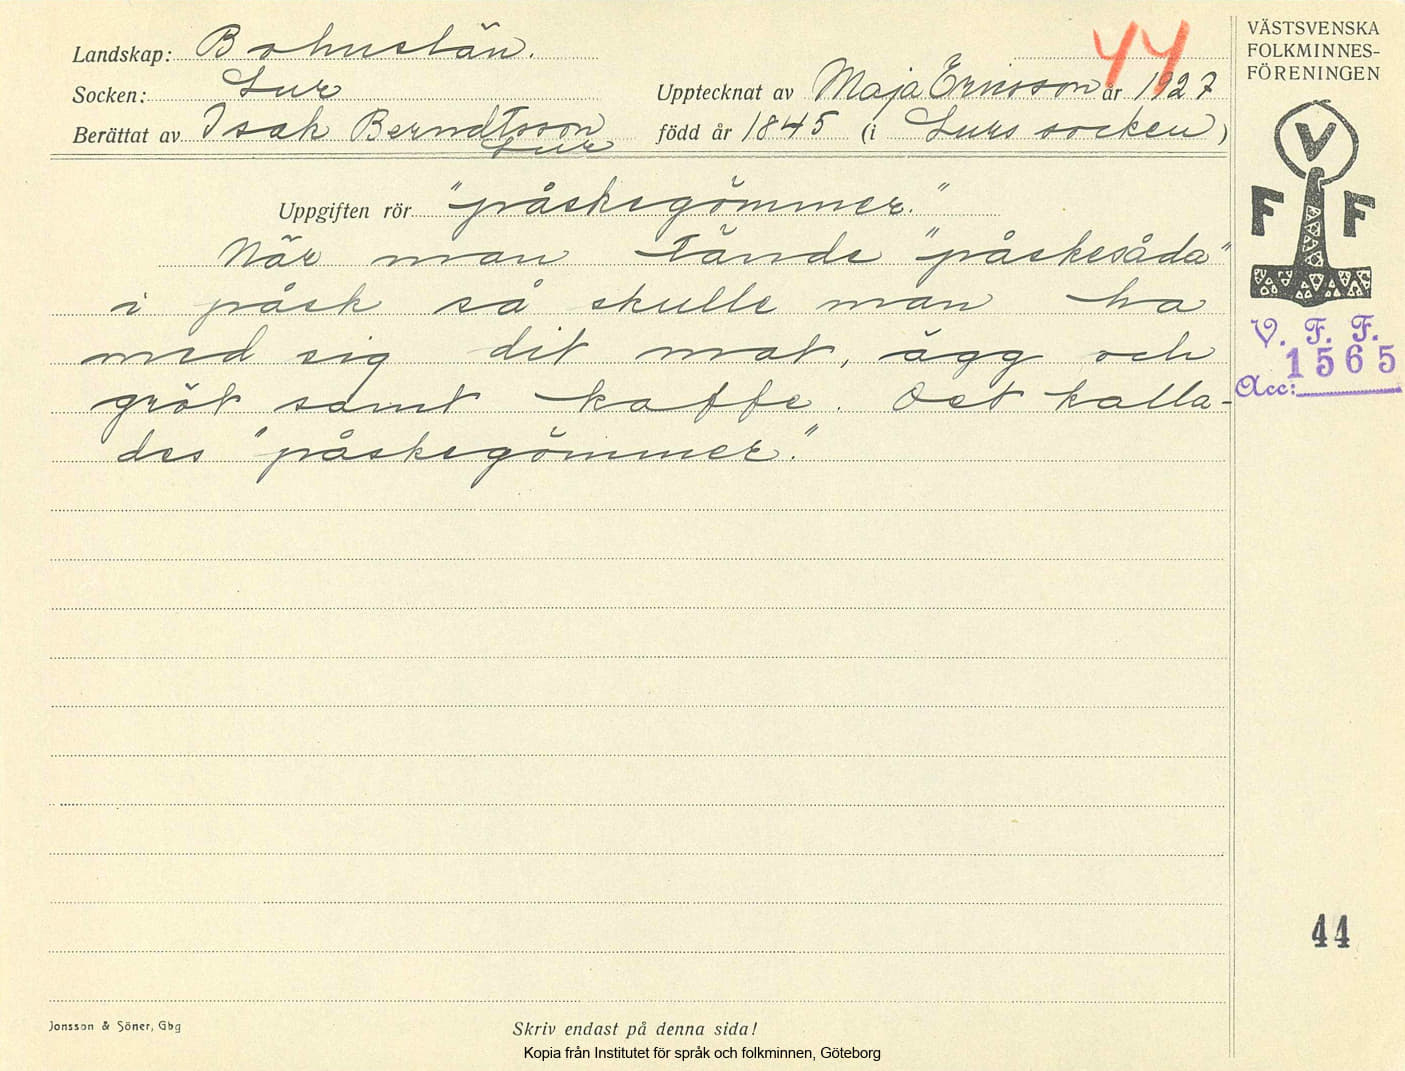 44
VÄSTSVENSKA
FOLKMINNES-
FÖRENINGEN
Landskap: Bohuslän.
Socken: Lur
Upptecknat av Maja Ericsson år 1927
Berättat av Isak Berndtsson
Lur
född år 1845 (i Lurs socken)
V
F F
Uppgiften rör "påskegömmer."
När man tände "påskesåda"
i påsk så skulle man ha
med sig dit mat, ägg och
gröt samt kaffe. Det kalla-
des "påskegömmer."
V. F. F.
1565
Acc:
44
Jonsson & Söner, Gbg
Skriv endast på denna sida!
Kopia från Institutet för språk och folkminnen, Göteborg